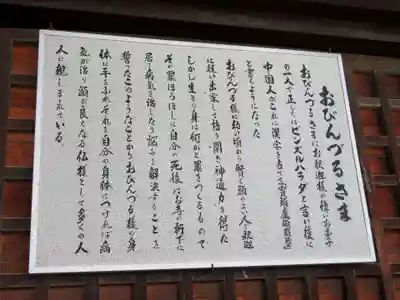 おびんづるさま
おびんづるさまはお釈迦様の強いお弟子
の一人で正しくはピンズルハラダと言い後に
中国人がこれに漢字を当て(賓頭盧頗羅堕)
と書くようになった
おびんづる様は幼い頃から賢く頭のよい人で釈迦
に従い出家して悟りを開き神通力を得た
しかし生き身は何かと業をつくるもので
その罪ほろぼしに自分の死後はお寺の軒下に
居て病気を治したり悩みを解決することを
誓ったこのようなことからおびんづる様の身
体に手をふれそれを自分の身体につければ病
気が治り頭が良くなる仏様として多くの人
人に親しまれている。